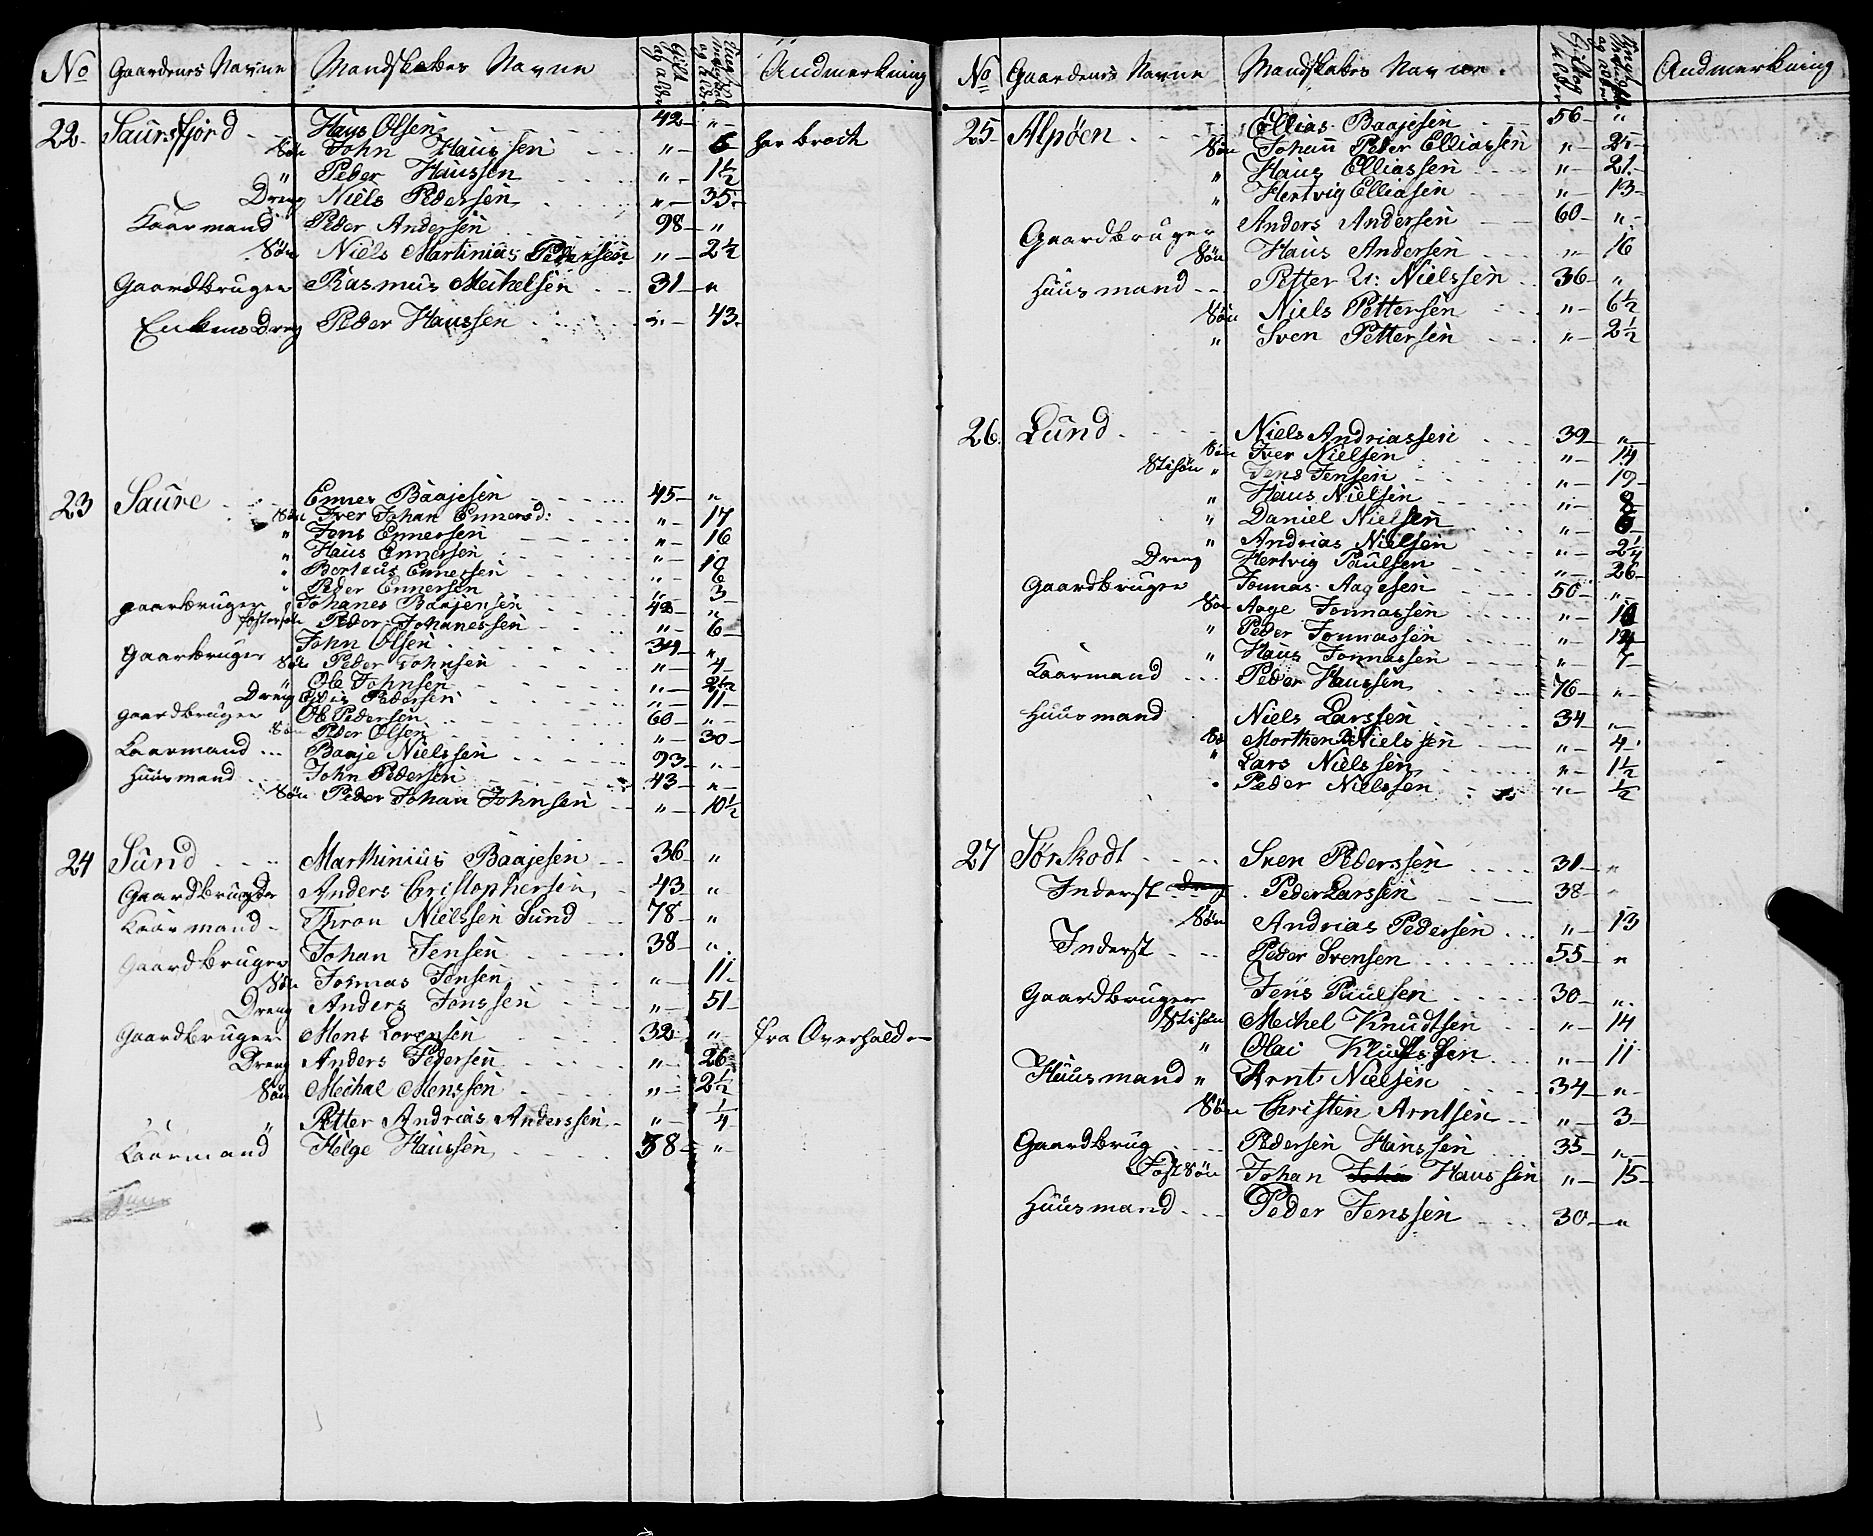 No Gaardenes Navne Mandskabes Navne Gift og alder Andmerkning
22 Saursfjord Hans Olsen 42 "
Søn John Hanssen " 6 har brock
" Peder Hanssen " 1½
Dreng Niels Pedersen " 35
Kaarmand Peder Andersen 98 "
Søn Niels Martinius Pedersen " 2½
Gaardbruger Rasmus Meikelsen 31 "
Enkens Dreng Peder Hanssen " 43
23 Saure Ennes Baajesen 45 "
Søn Iver Johan Ennersd: " 17
" Jens Ennersen " 16
" Hans Ennersen "
" Berteus Ennersen " 6
" Peder Ennersen " 3
gaarbruger Johanes Baajensen 42 "
fostersøn Peder Johanessen " 6
Gaarbruger John Olsen 34 "
Søn Peder Johnsen " 4
" Ole Johnsen " 2½
Dreng Pedersen " 11
gaardbruger Ole Pedersen 60 "
Søn Peder Olsen " 30
Kaarmand Baaje Nielssen 93 "
Huusmand John Pedersen 43 "
Søn Peder Johan Johnsen " 10½
24 Sund Marthinius Baajesen 36 "
Gaardbruger Anders Christophersen 43 "
Kaarmand Thron Nielssen Sund 78 "
Gaardbruger Johan Jensen 38 "
Søn Jonnas Jensen " 11
Dreng Anders Jonssen " 51
Gaardbruger Mons Lorensen 32 " fra Overhald
Dreng Anders Pedersen " 26
Søn Meikal Monssen " 2½
" Petter Andrias Anderssen " ¼
Kaarmand Helge Hanssen 58 "
No Gaardenes Navne Mandskabes Navne Gift og alder Andmerkning
25 Alsøen Ellias Baajesen 56 "
Søn Johan Peder Elliassen " 25
" Hans Elliassen " 21
" Hertvig Elliasen " 13
Gaardbruger Anders Andersen 60 "
Søn Hans Andersen " 16
Huusmand Petter Nielssen 36 "
Søn Niels Pettersen " 6½
" Sven Pettersen " 2½
26 Lund Niels Andriassen 39 "
Søn Iver Nielsen " 14
Stisøn " Jens Jensen " 19
" Hans Nielsen " 8
" Daniel Nielsen " 6
" Andrias Nielsen " 2¼
Dreng Hertvig Paulsen " 26
Gaardbruger Jonnas Aagesen 50 "
Søn Aage Jonnassen "
" Peder Jonnassen " 14
" Hans Jonnassen " 7
Kaarmand Peder Hanssen 76 "
Huusmand Niels Larssen 34 "
Sø Morthen Nielssen " 4
" Lars Nielssen " 1½
" Peder Nielssen " ½
27 Sørskodt Sven Pederssen 31 "
Inderst Peder Larssen 38 "
Søn Andrias Pedersen " 13
Inderst Peder Svensen 55 "
Gaardbruger Jens Paulsen 30 "
Stisøn Meikel Knudtsen " 14
" Olai " 11
Huusmand " Arnt Nielsen 34 "
Søn Christen Arntsen " 3
Gaardbrug Pedersen Hanssen 35 "
Fostsøn Johan Hanssen " 15
Huusmand Peder Jenssen 30 "